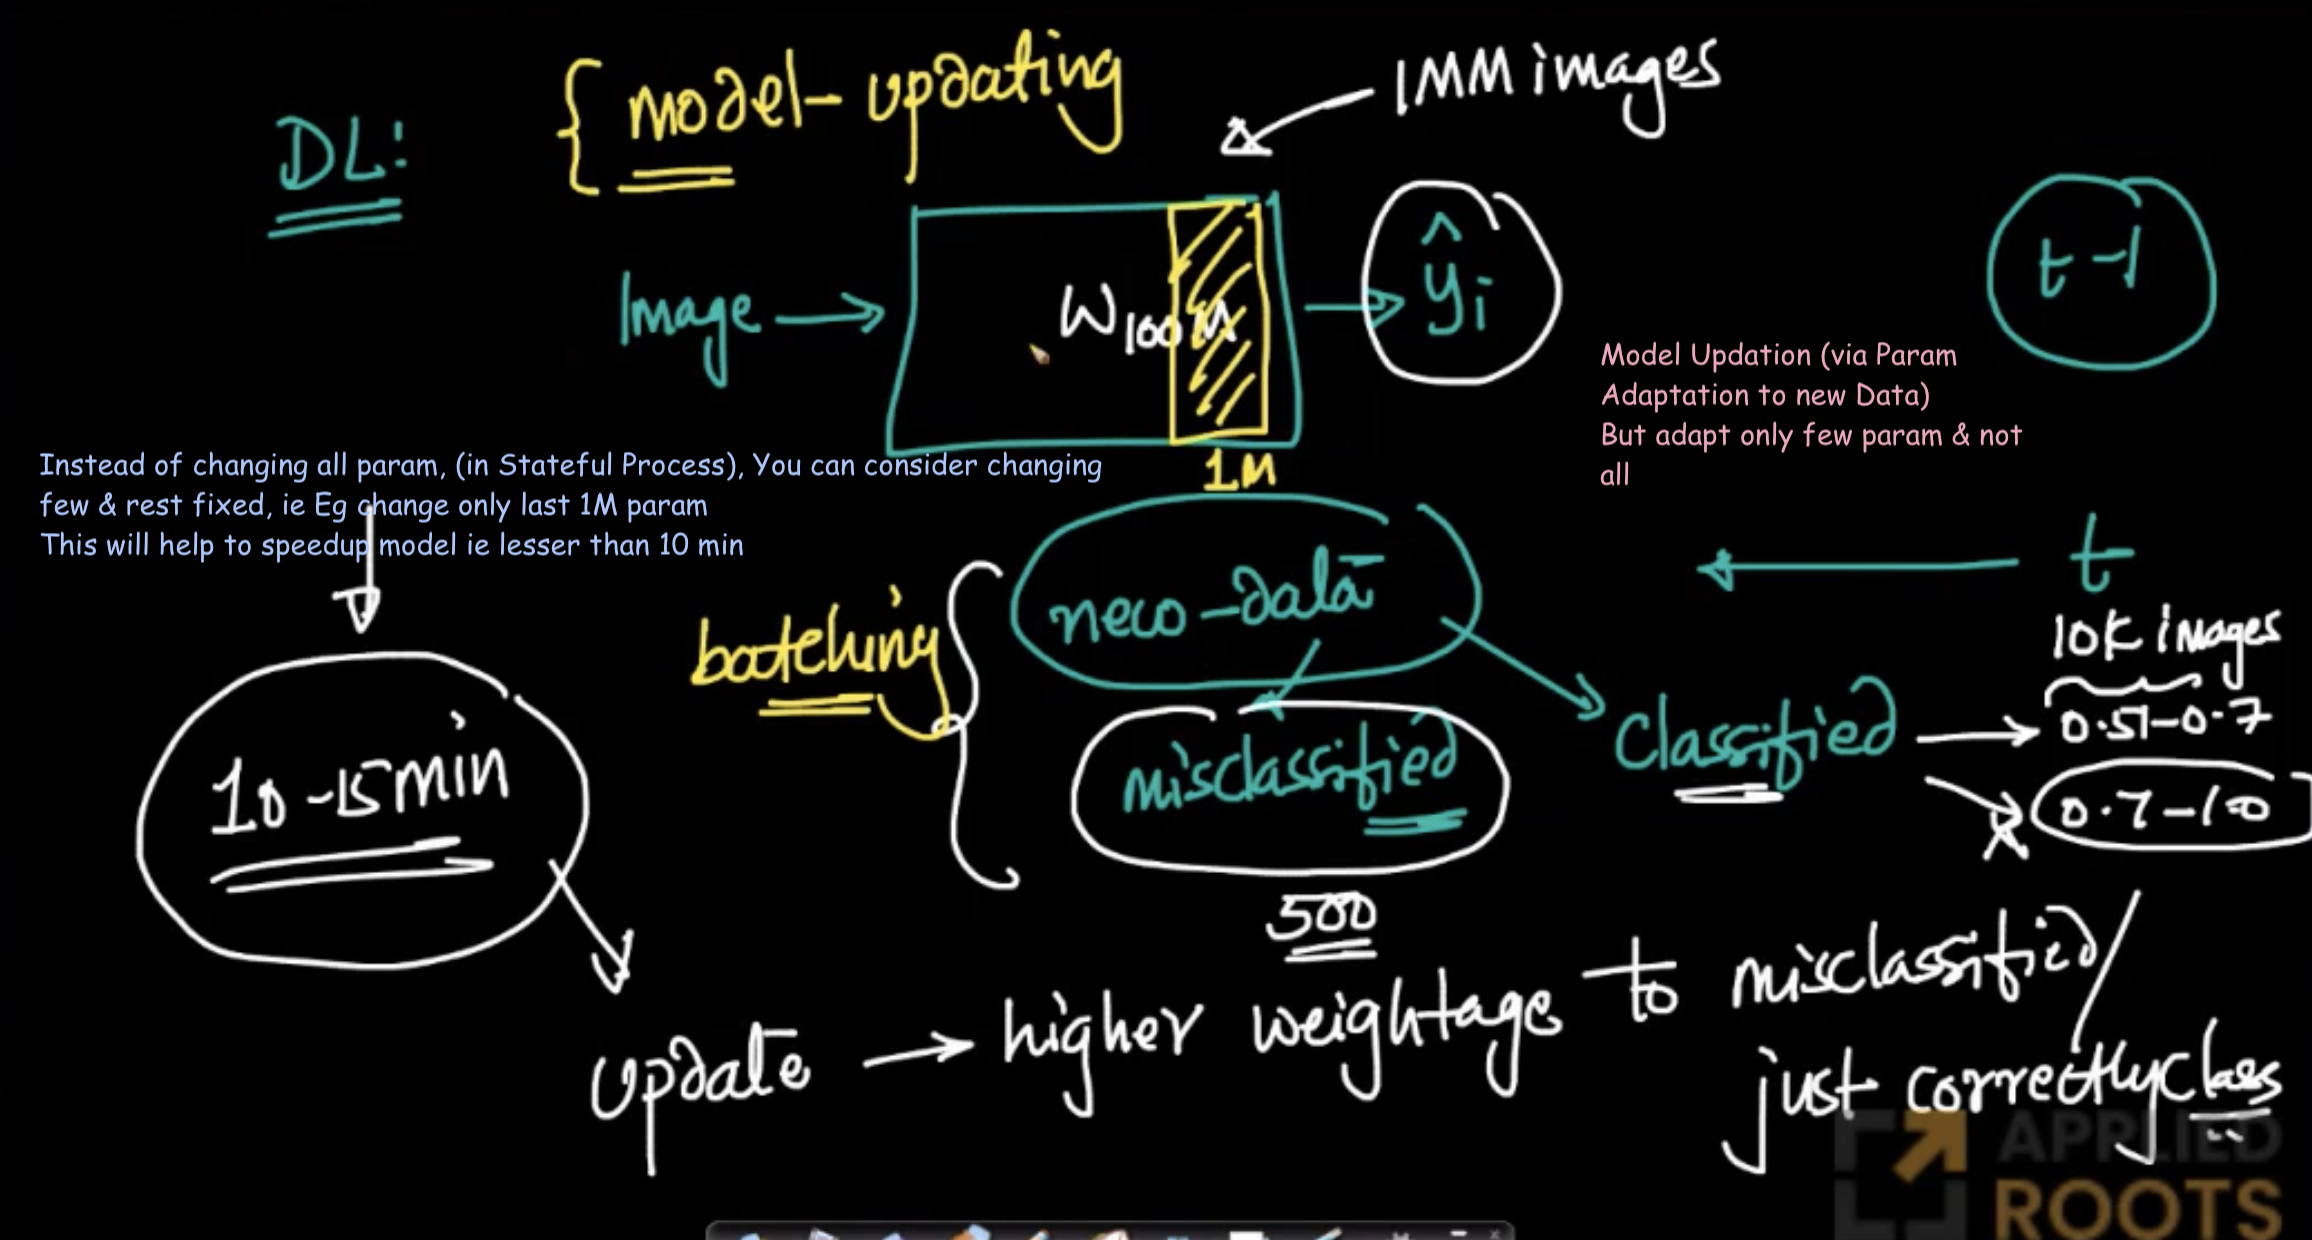 DL:
{ model-updating
1MM images
Image →
W100M
ŷi
t-1
Model Updation (via Param
Adaptation to new Data)
But adapt only few param & not
all
Instead of changing all param, (in Stateful Process), You can consider changing
few & rest fixed, ie Eg change only last 1M param
This will help to speedup model ie lesser than 10 min
1M
t
new-data
batching
10k images
misclassified
Classified
0.51-0.7
0.7-1.0
10-15min
500
update → higher weightage to misclassified/
just correctly class
APPLIED
ROOTS